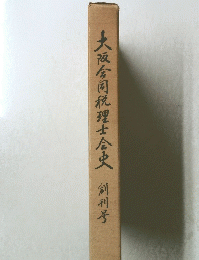 大阪合同税理士会史 創刊号